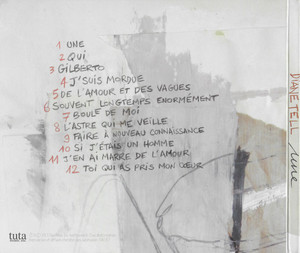 1 UNE
2 QUI
3 GILBERTO
4 J'SUIS MORDUE
5 DE L'AMOUR ET DES VAGUES
6 SOUVENT LONGTEMPS ENORMÉMENT
7 BOULE DE MOI
8 L'ASTRE QUI ME VEILLE
9 FAIRE À NOUVEAU CONNAISSANCE
10 SI J'ÉTAIS UN HOMME
11 J'EN AI MARRE DE L'AMOUR
12 TOI QUI AS PRIS MON CŒUR
tuta
DIANE TELL une